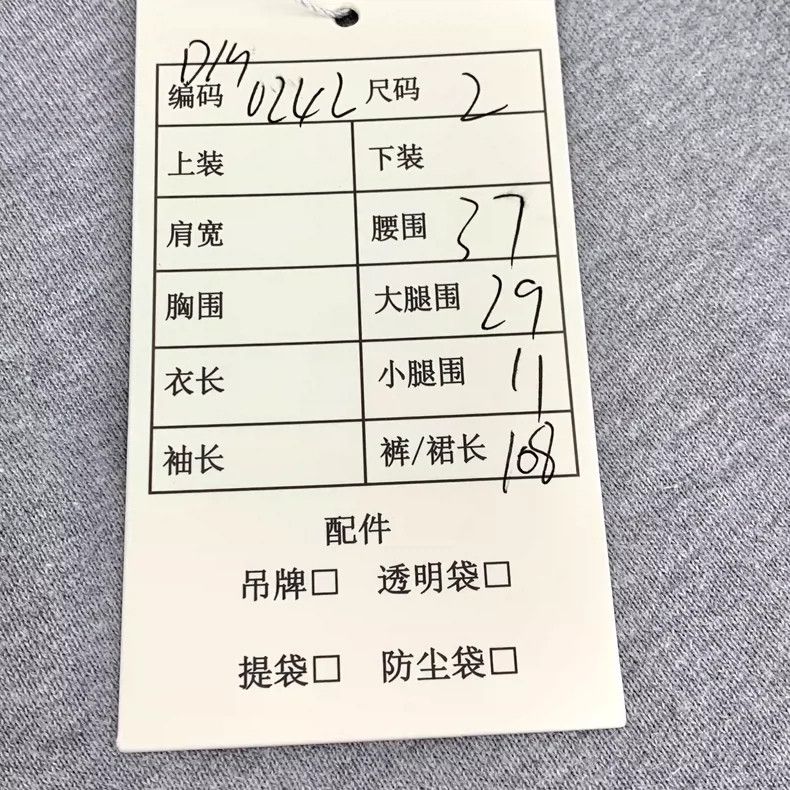 编码 0242 尺码 2
上装 下装
肩宽 腰围 37
胸围 大腿围 29
衣长 小腿围 11
袖长 裤/裙长 108
配件
吊牌□ 透明袋□
提袋□ 防尘袋□